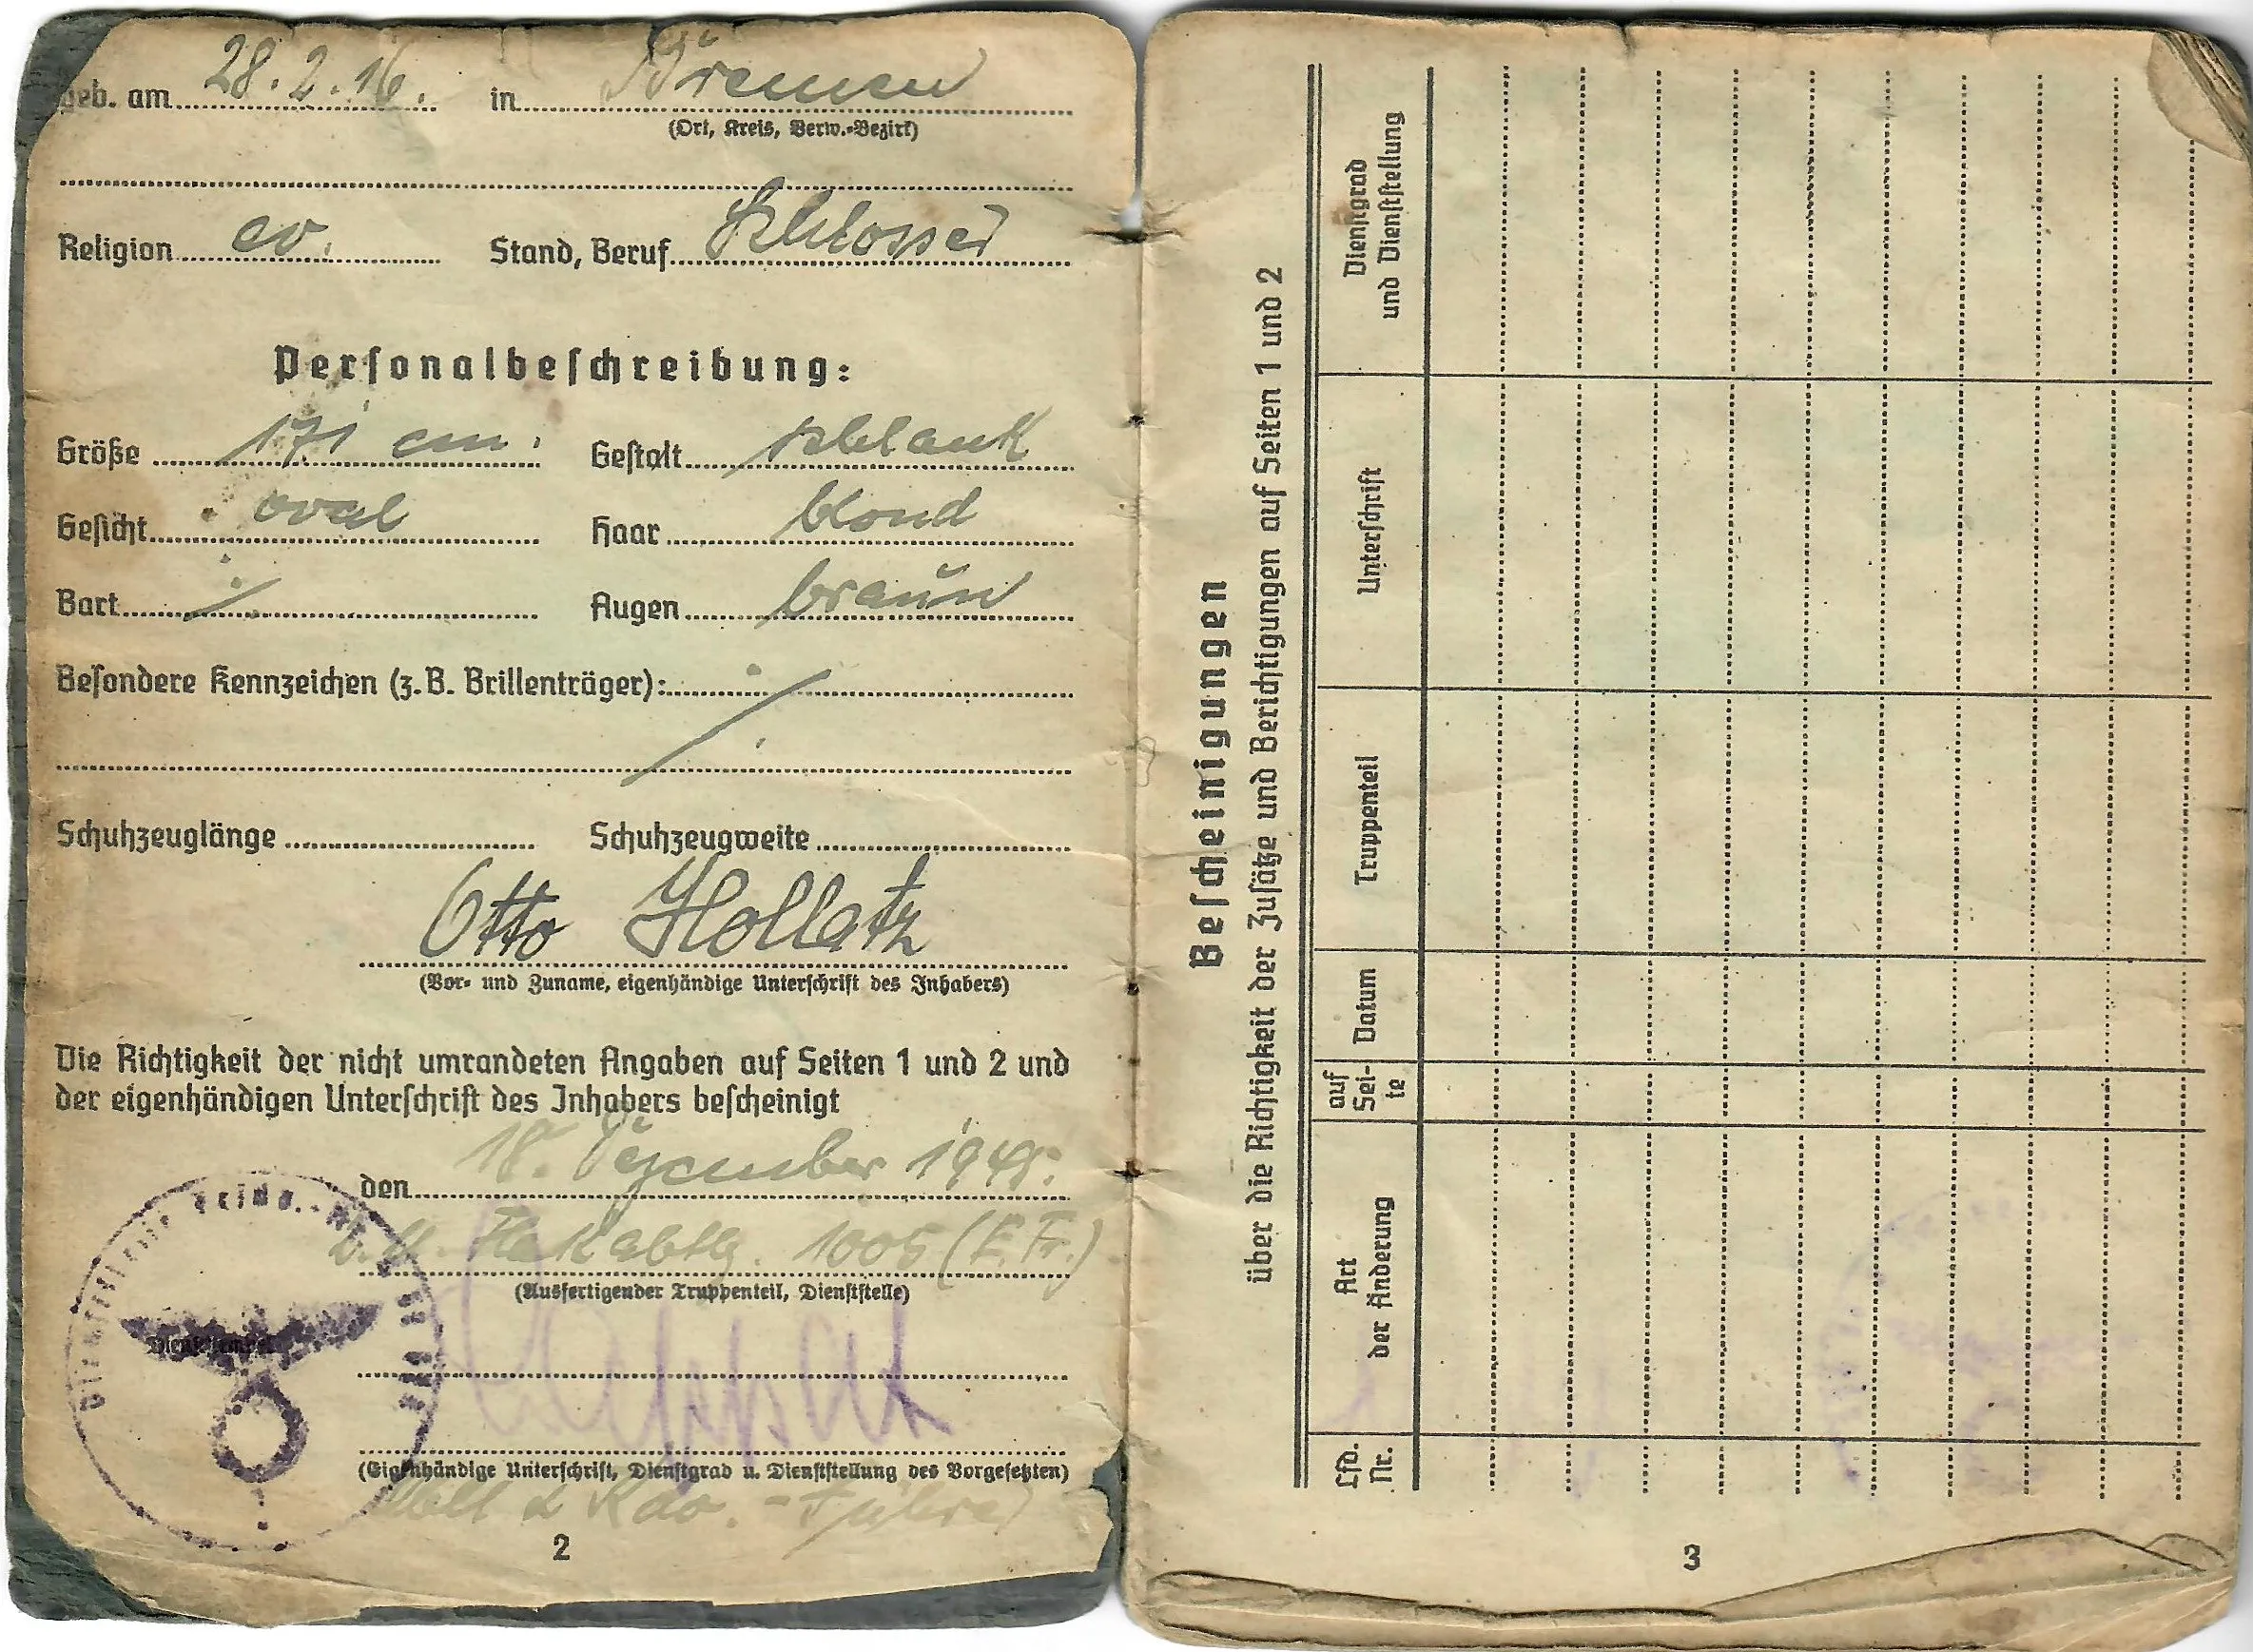 geb. am 28.2.16. in Bremen
(Ort, Kreis, Verw.-Bezirk)
Religion ev. Stand, Beruf Schlosser
Personalbeschreibung:
Größe 171 cm. Gestalt schlank
Gesicht oval Haar blond
Bart ./. Augen braun
Besondere Kennzeichen (z. B. Brillenträger): ./.
Schuhzeuglänge Schuhzeugweite
Otto Hollatz
(Vor- und Zuname, eigenhändige Unterschrift des Inhabers)
Die Richtigkeit der nicht umrandeten Angaben auf Seiten 1 und 2 und
der eigenhändigen Unterschrift des Inhabers bescheinigt
den 18. Dezember
Flakabtlg. 1005
(Ausfertigender Truppenteil, Dienststelle)
Dienststempel
(Eigenhändige Unterschrift, Dienstgrad u. Dienststellung des Vorgesetzten)
Führer
2
Bescheinigungen
über die Richtigkeit der Zusätze und Berichtigungen auf Seiten 1 und 2
Lfd. Nr.
Art der Änderung
auf Sei-te
Datum
Truppenteil
Unterschrift
Dienstgrad und Dienststellung
3